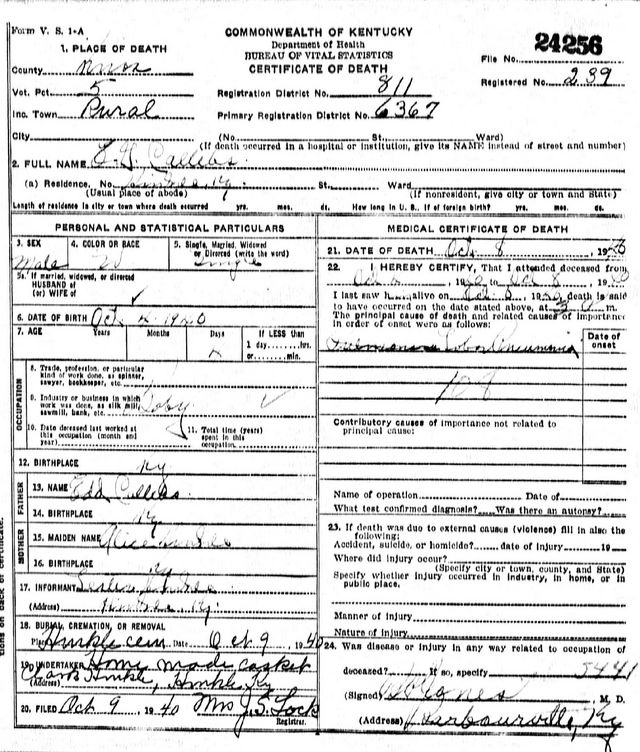 Form V. S. 1-A
COMMONWEALTH OF KENTUCKY
Department of Health
BUREAU OF VITAL STATISTICS
CERTIFICATE OF DEATH
24256
File No.
Registered No. 239
1. PLACE OF DEATH
County Knox
Vot. Pct 5
Inc. Town Rural
Registration District No. 811
Primary Registration District No. 6367
City (No. St. Ward)
(If death occurred in a hospital or institution, give its NAME instead of street and number)
2. FULL NAME
(a) Residence. No. Hinkle, Ky. St. Ward
(Usual place of abode) (If nonresident, give city or town and State)
Length of residence in city or town where death occurred yrs. mos. ds. How long in U. S., if of foreign birth? yrs. mos. ds.
PERSONAL AND STATISTICAL PARTICULARS
3. SEX
Male
4. COLOR OR RACE
W
5. Single, Married, Widowed
or Divorced (write the word)
Single
5a. If married, widowed, or divorced
HUSBAND of
(or) WIFE of
6. DATE OF BIRTH Oct. 1940
7. AGE Years Months Days If LESS than
1 day, hrs.
or min.
OCCUPATION
8. Trade, profession, or particular
kind of work done, as spinner,
sawyer, bookkeeper, etc.
9. Industry or business in which
work was done, as silk mill,
sawmill, bank, etc.
Baby
10. Date deceased last worked at
this occupation (month and
year)
11. Total time (years)
spent in this
occupation
12. BIRTHPLACE Ky
FATHER
13. NAME Edd
14. BIRTHPLACE Ky
MOTHER
15. MAIDEN NAME Alice
16. BIRTHPLACE Ky
17. INFORMANT
(Address) Ky.
18. BURIAL, CREMATION, OR REMOVAL
Place Hinkle cem Date Oct 9, 1940
19. UNDERTAKER Home made casket
(Address) Hinkle, Hinkle, Ky
20. FILED Oct 9, 1940 Mrs J. S. Lock
Registrar.
MEDICAL CERTIFICATE OF DEATH
21. DATE OF DEATH Oct. 8, 1940
22. I HEREBY CERTIFY, That I attended deceased from
19 to Oct 8, 1940
I last saw h alive on Oct. 19 death is said
to have occurred on the date stated above, at m.
The principal cause of death and related causes of importance
in order of onset were as follows:
Date of
onset
Lobar Pneumonia
109
Contributory causes of importance not related to
principal cause:
Name of operation Date of
What test confirmed diagnosis? Was there an autopsy?
23. If death was due to external causes (violence) fill in also the
following:
Accident, suicide, or homicide? date of injury 19
Where did injury occur?
(Specify city or town, county, and State)
Specify whether injury occurred in industry, in home, or in
public place.
Manner of injury
Nature of injury
24. Was disease or injury in any way related to occupation of
deceased? If so, specify
(Signed) M. D.
(Address) Barbourville, Ky
tions on back of certificate.